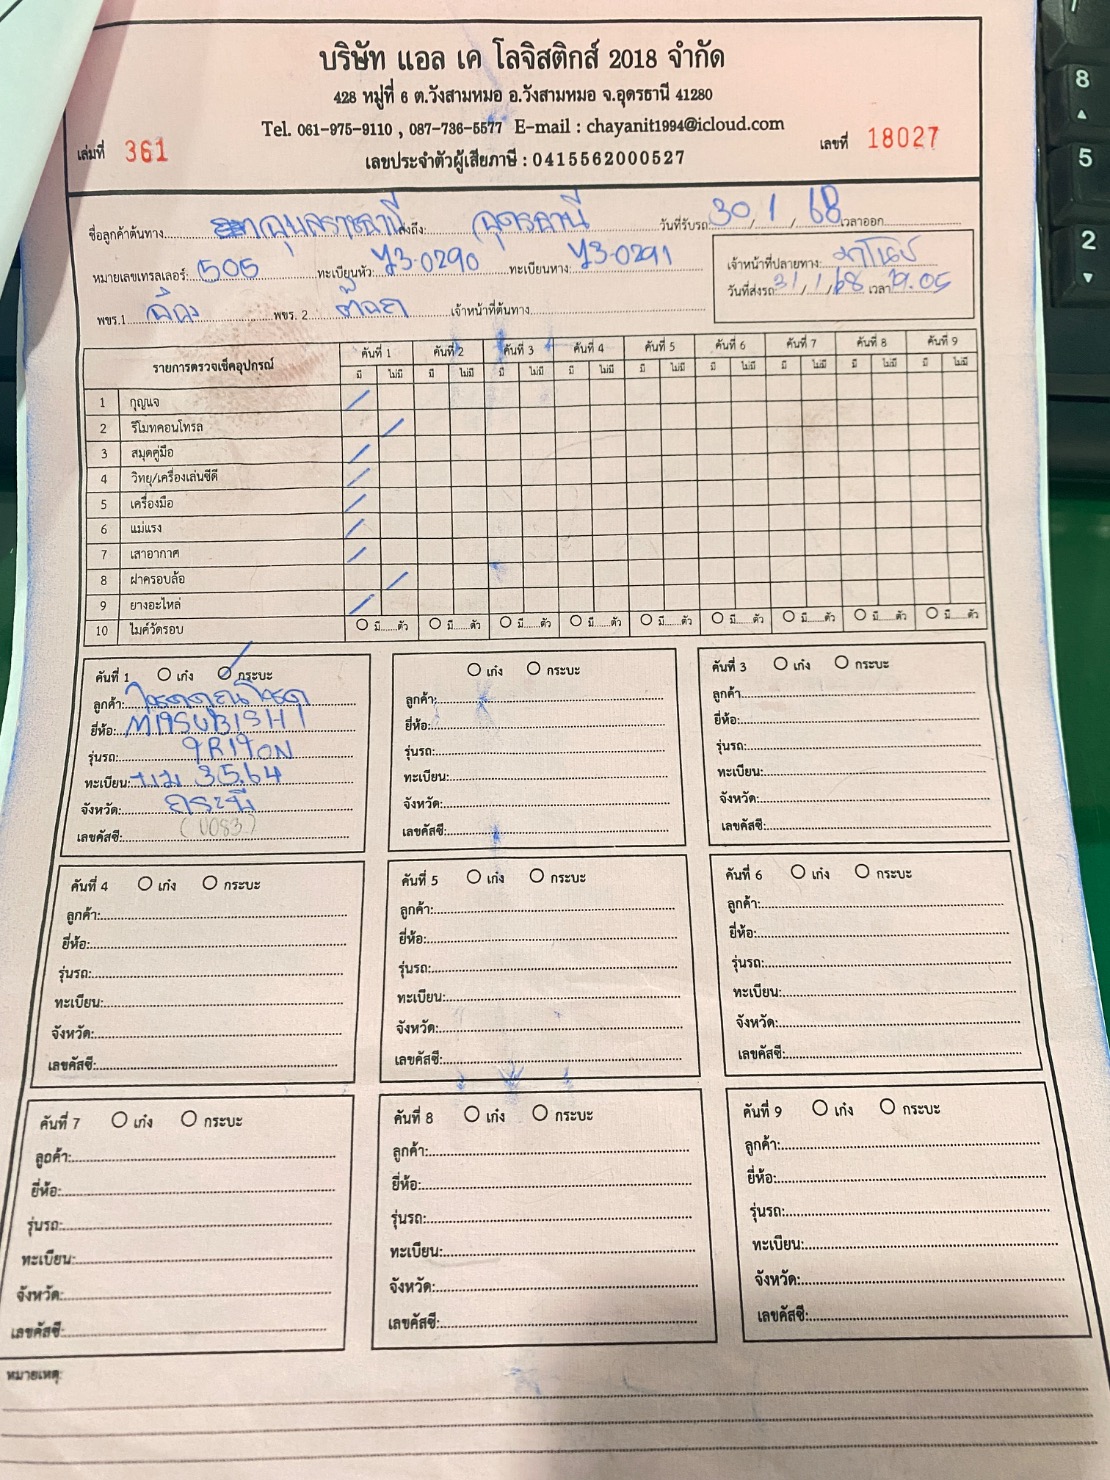 บริษัท แอล เค โลจิสติกส์ 2018 จำกัด
428 หมู่ที่ 6 ต.วังสามหมอ อ.วังสามหมอ จ.อุดรธานี 41280
Tel. 061-975-9110 , 087-736-5577 E-mail : chayanit1994@icloud.com
เล่มที่ 361 เลขประจำตัวผู้เสียภาษี : 0415562000527 เลขที่ 18027
ชื่อลูกค้าต้นทาง อุบลราชธานี ส่งถึง: อุดรธานี วันที่รับรถ: 30 / 1 / 68 เวลาออก
หมายเลขเทรลเลอร์: 505 ทะเบียนหัว: 73-0290 ทะเบียนหาง: 73-0291
เจ้าหน้าที่ปลายทาง:
วันที่ส่งรถ: 31 / 1 / 68 เวลา 19.05
พขร.1 พขร. 2 เจ้าหน้าที่ต้นทาง
รายการตรวจเช็คอุปกรณ์ คันที่ 1 คันที่ 2 คันที่ 3 คันที่ 4 คันที่ 5 คันที่ 6 คันที่ 7 คันที่ 8 คันที่ 9
มี ไม่มี มี ไม่มี มี ไม่มี มี ไม่มี มี ไม่มี มี ไม่มี มี ไม่มี มี ไม่มี มี ไม่มี
1 กุญแจ
2 รีโมทคอนโทรล
3 สมุดคู่มือ
4 วิทยุ/เครื่องเล่นซีดี
5 เครื่องมือ
6 แม่แรง
7 เสาอากาศ
8 ฝาครอบล้อ
9 ยางอะไหล่
10 ไมค์วัดรอบ มี......ตัว มี......ตัว มี......ตัว มี......ตัว มี......ตัว มี......ตัว มี......ตัว มี......ตัว มี......ตัว
คันที่ 1 เก๋ง กระบะ
ลูกค้า:
ยี่ห้อ: MITSUBISHI
รุ่นรถ: TRITON
ทะเบียน: 3564
จังหวัด: กระบี่
เลขคัสซี: (0083)
เก๋ง กระบะ
ลูกค้า:
ยี่ห้อ:
รุ่นรถ:
ทะเบียน:
จังหวัด:
เลขคัสซี:
คันที่ 3 เก๋ง กระบะ
ลูกค้า:
ยี่ห้อ:
รุ่นรถ:
ทะเบียน:
จังหวัด:
เลขคัสซี:
คันที่ 4 เก๋ง กระบะ
ลูกค้า:
ยี่ห้อ:
รุ่นรถ:
ทะเบียน:
จังหวัด:
เลขคัสซี:
คันที่ 5 เก๋ง กระบะ
ลูกค้า:
ยี่ห้อ:
รุ่นรถ:
ทะเบียน:
จังหวัด:
เลขคัสซี:
คันที่ 6 เก๋ง กระบะ
ลูกค้า:
ยี่ห้อ:
รุ่นรถ:
ทะเบียน:
จังหวัด:
เลขคัสซี:
คันที่ 7 เก๋ง กระบะ
ลูกค้า:
ยี่ห้อ:
รุ่นรถ:
ทะเบียน:
จังหวัด:
เลขคัสซี:
คันที่ 8 เก๋ง กระบะ
ลูกค้า:
ยี่ห้อ:
รุ่นรถ:
ทะเบียน:
จังหวัด:
เลขคัสซี:
คันที่ 9 เก๋ง กระบะ
ลูกค้า:
ยี่ห้อ:
รุ่นรถ:
ทะเบียน:
จังหวัด:
เลขคัสซี:
หมายเหตุ:
8
5
2